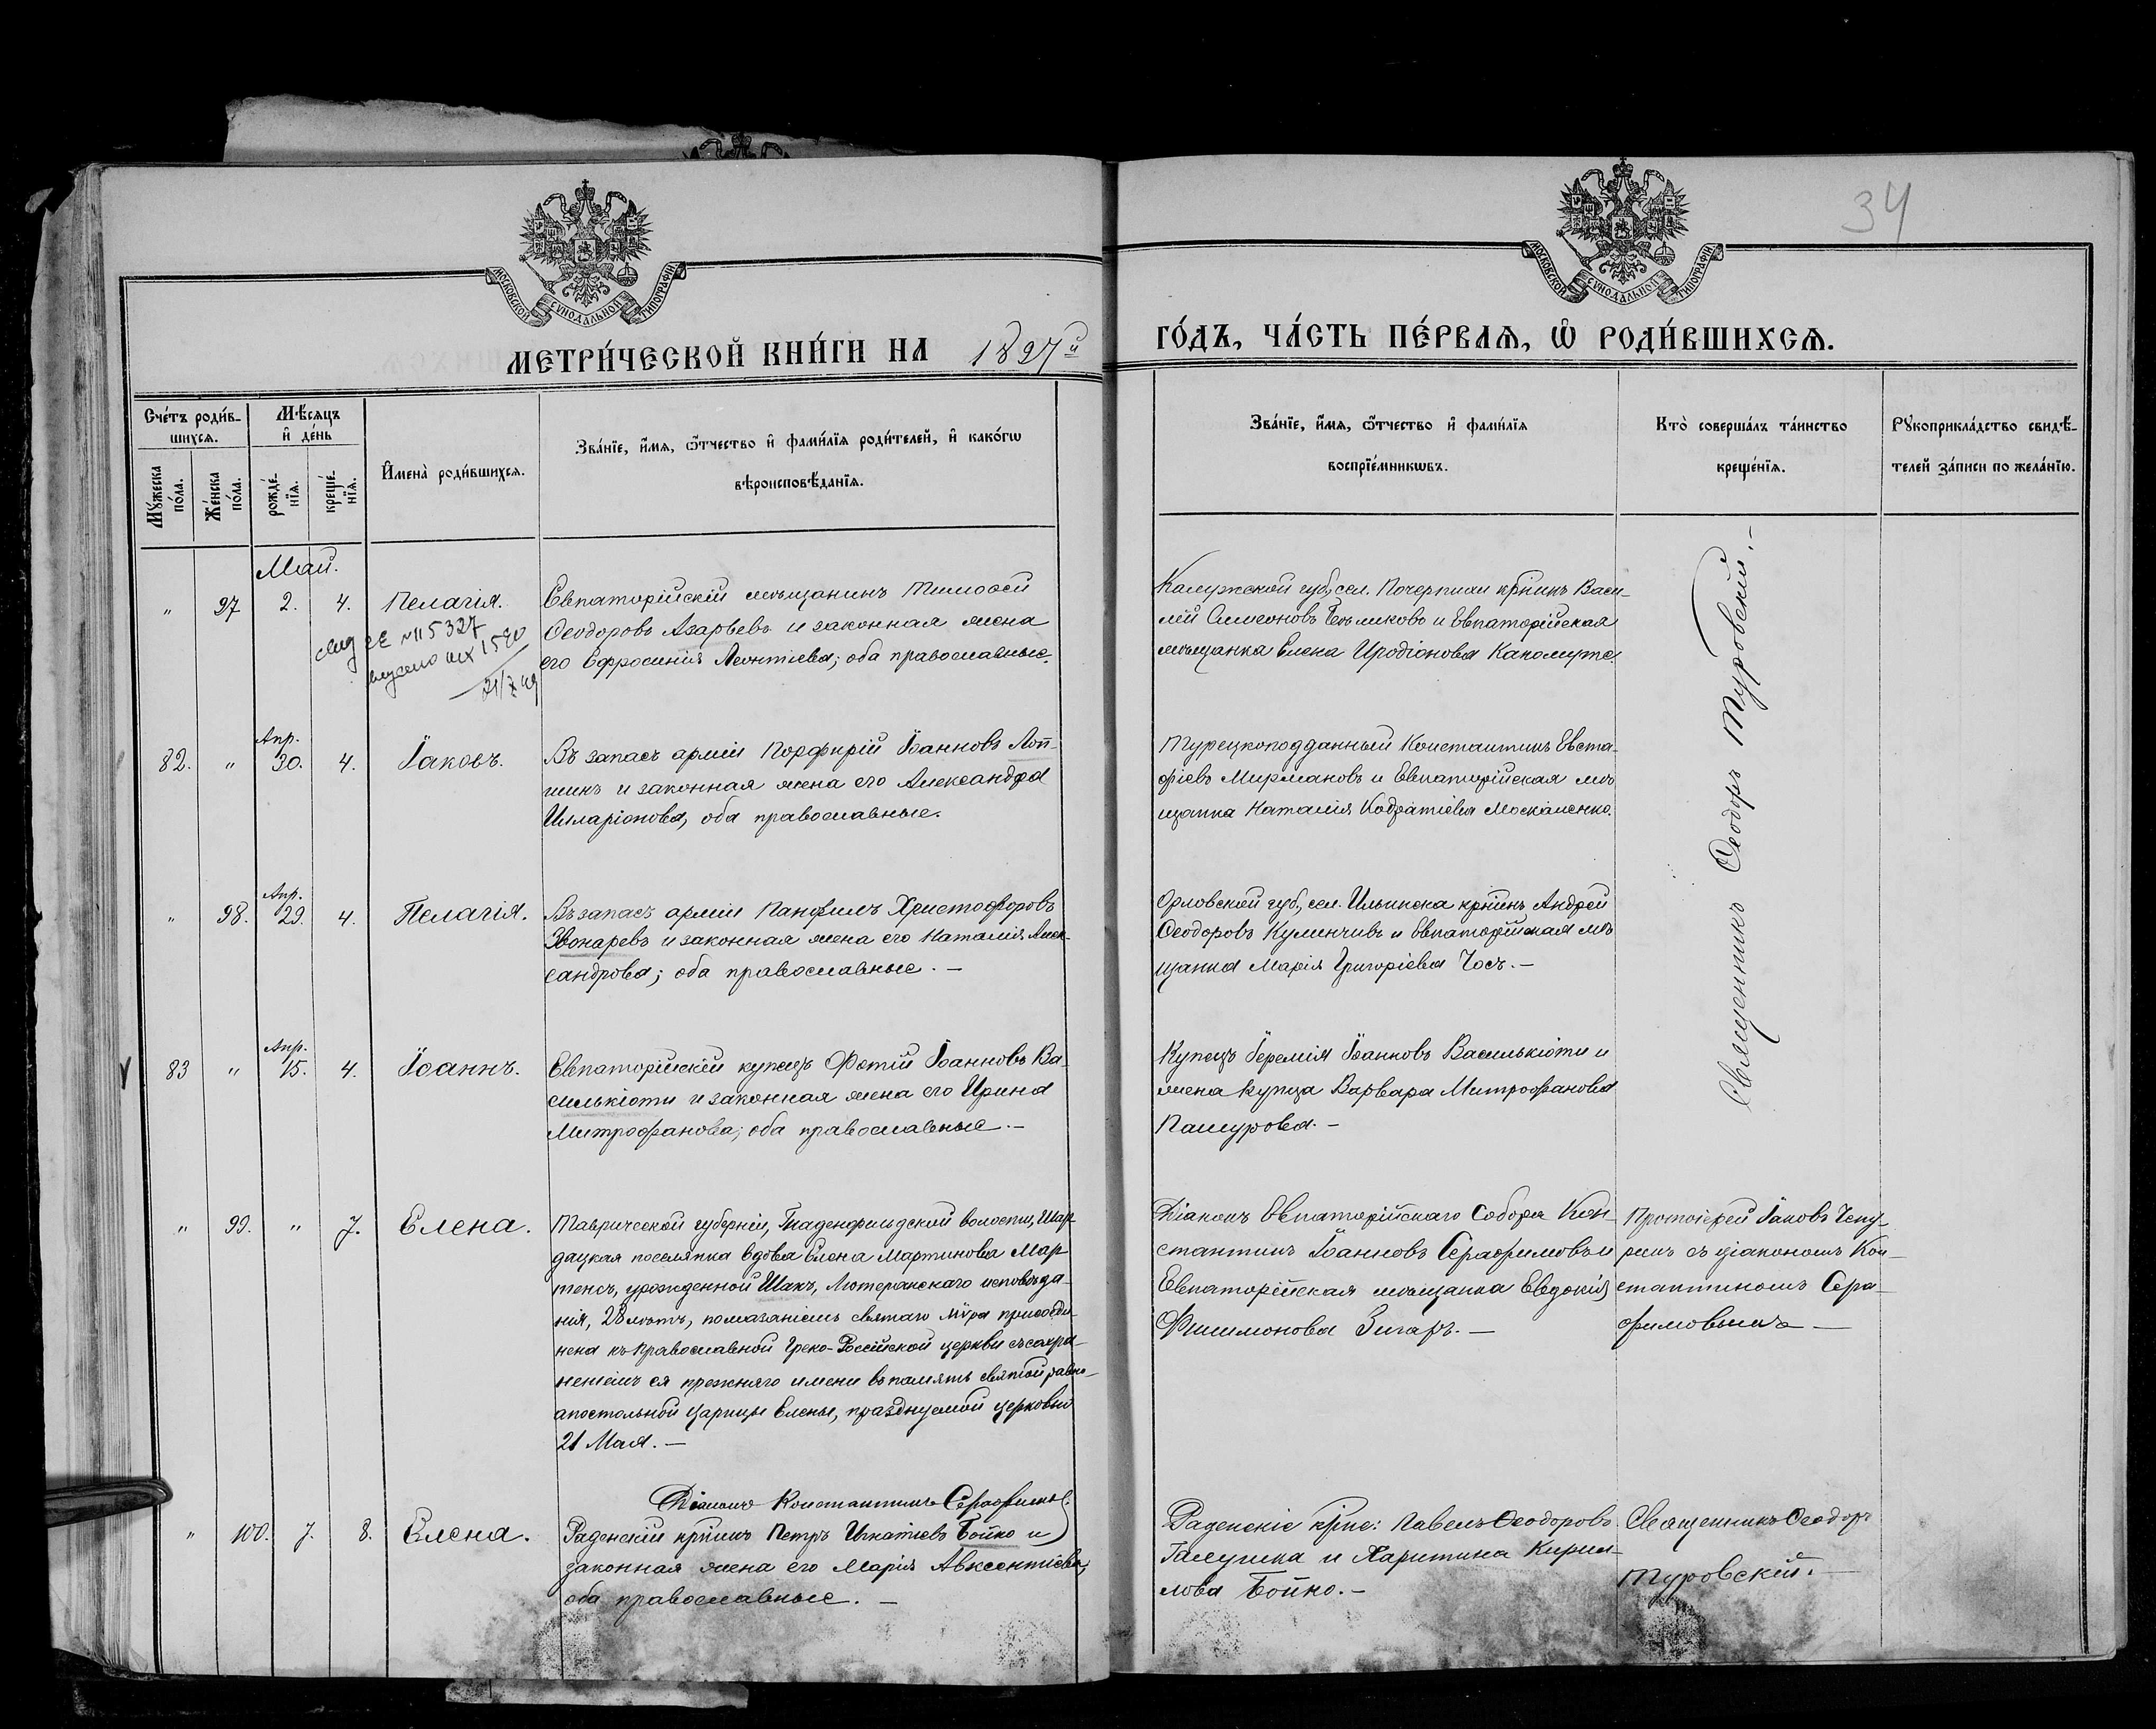 34
МОСКОВСКОЙ СѴНОДАЛЬНОЙ ТИПОГРАФІИ.
МОСКОВСКОЙ СѴНОДАЛЬНОЙ ТИПОГРАФІИ.
МЕТРИ́ЧЕСКОЙ КНИ́ГИ НА 1897й
ГО́ДЪ, ЧА́СТЬ ПЕ́РВАѦ, Ѡ РОДИ́ВШИХСѦ.
Сче́тъ роди́в-
шихсѧ.
Мꙋ́жеска по́ла.
Же́нска по́ла.
Мѣ́сѧцъ
и де́нь
рожде́-
нїѧ.
креще́-
нїѧ.
Имена̀ роди́вшихсѧ.
Зва́нїе, и́мѧ, ѻ́тчество и фами́лїѧ роди́телей, и како́гѡ
вѣроисповѣ́данїѧ.
Зва́нїе, и́мѧ, ѻ́тчество и фами́лїѧ
воспрїе́мникѡвъ.
Кто̀ соверша́лъ та́инство
креще́нїѧ.
Рꙋкоприкла́дство свидѣ́-
телей за́писи по жела́нїю.
Май.
" 97 2. 4. Пелагія.
Евпаторійскій мѣщанинъ Тимоѳей
Ѳеодоровъ Азарьевъ и законная жена
его Ефросинія Леонтіева; оба православные.
Калужской губ., сел. Почерпихи крнинъ Васи-
лій Симеоновъ и Евпаторійская
мѣщанка Елена Иродіонова
№ 115327
1580
Священникъ Ѳеодоръ Туровскій.-
82. " Апр. 30. 4. Іаковъ.
Въ запасѣ арміи Порфирій Іоанновъ Лоп-
шинъ и законная жена его Александра
Илларіонова, оба православные.
Турецкоподданный Константинъ Евста-
фіевъ Мирмановъ и Евпаторійская мѣ
щанка Наталія Кодратіева Москаленко.
" 98. Апр. 29. 4. Пелагія.
Въ запасѣ арміи Панфилъ Христофоровъ
Звонаревъ и законная жена его Наталія Алек-
сандрова; оба православные. -
Орловской губ., сел. Ильинска крнинъ Андрей
Ѳеодоровъ и Евпаторійская мѣ
щанка Марія Григоріева Чосъ. -
83 " Апр. 15. 4. Іоаннъ.
Евпаторійскій купецъ Фотій Іоанновъ Ва-
силькіоти и законная жена его Ирина
Митрофанова; оба православные. -
Купецъ Іеремія Іоанновъ Василькіоти и
жена купца Варвара Митрофанова
Пашурова. -
" 99. " 7. Елена.
Таврической губерніи, Гнаденфельдской волости, Шар-
дацкая поселянка вдова Елена Мартинова Мар
тенсъ, урожденной Шакъ, Лютеранскаго исповѣда-
нія, 28 лѣтъ, помазаніемъ святаго мѵра присоеди-
нена къ православной Греко-Россійской церкви съ сохра-
неніемъ ея прежняго имени въ память святой равно-
апостольной Царицы Елены, празднуемой церковью
21 Мая. -
Діаконъ Константинъ Серафимовъ.
Діаконъ Евпаторійскаго Собора Кон-
стантинъ Іоанновъ Серафимовъ и
Евпаторійская мѣщанка Евдокія
Филимонова Зигаръ. -
Протоіерей Іаковъ Чепу-
ринъ съ діакономъ Кон-
стантиномъ Сера-
фимовымъ -
" 100. 7. 8. Елена.
Раденскій крнинъ Петръ Игнатіевъ Бойко и
законная жена его Марія Авксентіева,
оба православные. -
Раденскіе крне: Павелъ Ѳеодоровъ
Галушка и Харитина Кирил-
лова Бойко. -
Священникъ Ѳеодоръ
Туровскій. -